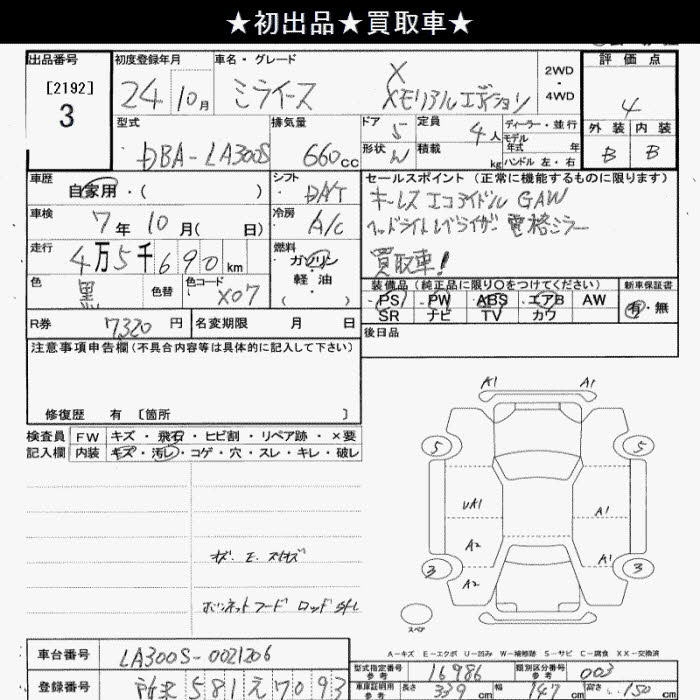 ★初出品★買取車★
出品番号
[2192]
3
初度登録年月
24 10月
車名・グレード
ミライース
X
Xメモリアルエディション
2WD
4WD
評価点
4
外装 内装
B B
型式
DBA-LA300S
排気量
660cc
ドア 5
形状
定員 4人
積載 kg
ディーラー・並行
モデル年式 年
ハンドル 左・右
車歴
自家用・( )
シフト
DAT
車検
7年10月( 日)
冷房
A/C
走行
4万5千690km
燃料
ガソリン
・
軽油
( )
色 黒 色替
色コード X07
セールスポイント (正常に機能するものに限ります)
キーレス エコアイドル GAW
ヘッドライトレベライザー 電格ミラー
買取車!
装備品(純正品に限り○をつけてください)
PS PW ABS エアB AW
SR ナビ TV カワ
新車保証書
有・無
R券 7320円
名変期限 月 日
後日品
注意事項申告欄(不具合内容等は具体的に記入して下さい)
修復歴 有 [箇所 ]
検査員
記入欄
FW キズ・飛石・ヒビ割・リペア跡・×要
内装 キズ・汚レ・コゲ・穴・スレ・キレ・破レ
ボンネットフード ロッド
A1 A1
5 5
UA1 A1
A2 A1
3 3
A2
スペア
A-キズ E-エクボ U-凹み W-補修跡 S-サビ C-腐食 XX-交換済
車台番号 LA300S-0021206
登録番号 所沢 581 え 7093
型式指定番号
参考
16986
類別区分番号
参考
003
車庫証明用
参考
長さ 339cm 幅 147cm 高さ 150cm